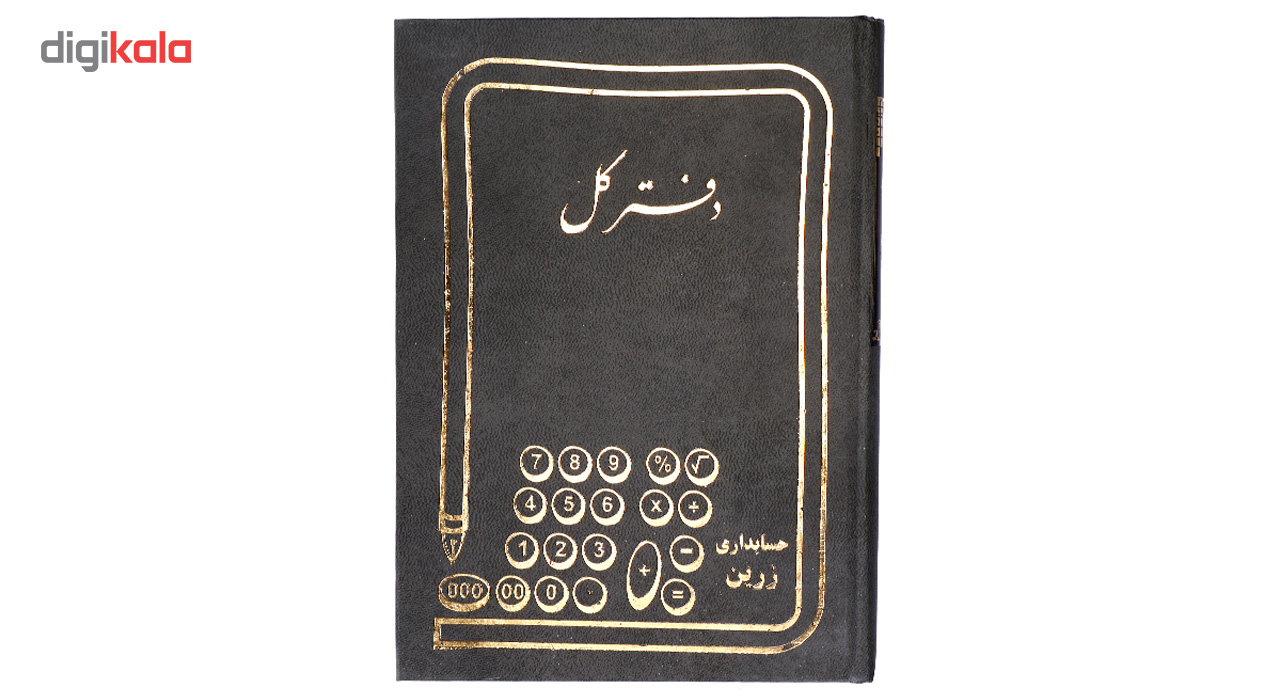 digikala
دفتر کل
7 8 9 % √
4 5 6 x ÷
1 2 3 + -
حسابداری
زرین
000 00 0 . =